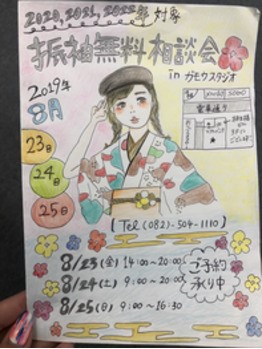 2020,2021,2022年 対象
振袖無料相談会
in ガモウスタジオ
2019年
8月
電車通り
23日
24日
25日
【Tel(082)-504-1110】
8/23(金) 14:00~20:00
8/24(土) 9:00~20:00
8/25(日) 9:00~16:30
ご予約
承り中